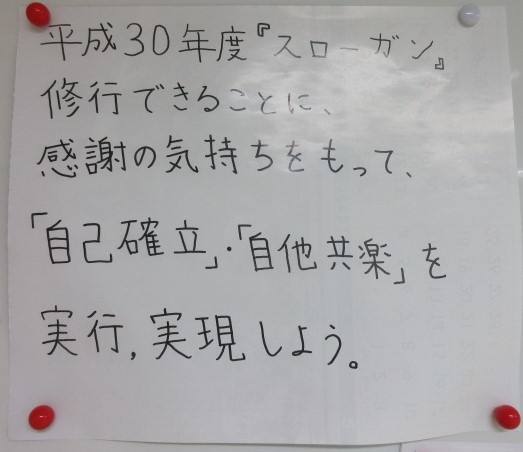 平成30年度『スローガン』
修行できることに、
感謝の気持ちをもって、
「自己確立」・「自他共楽」を
実行,実現しよう。